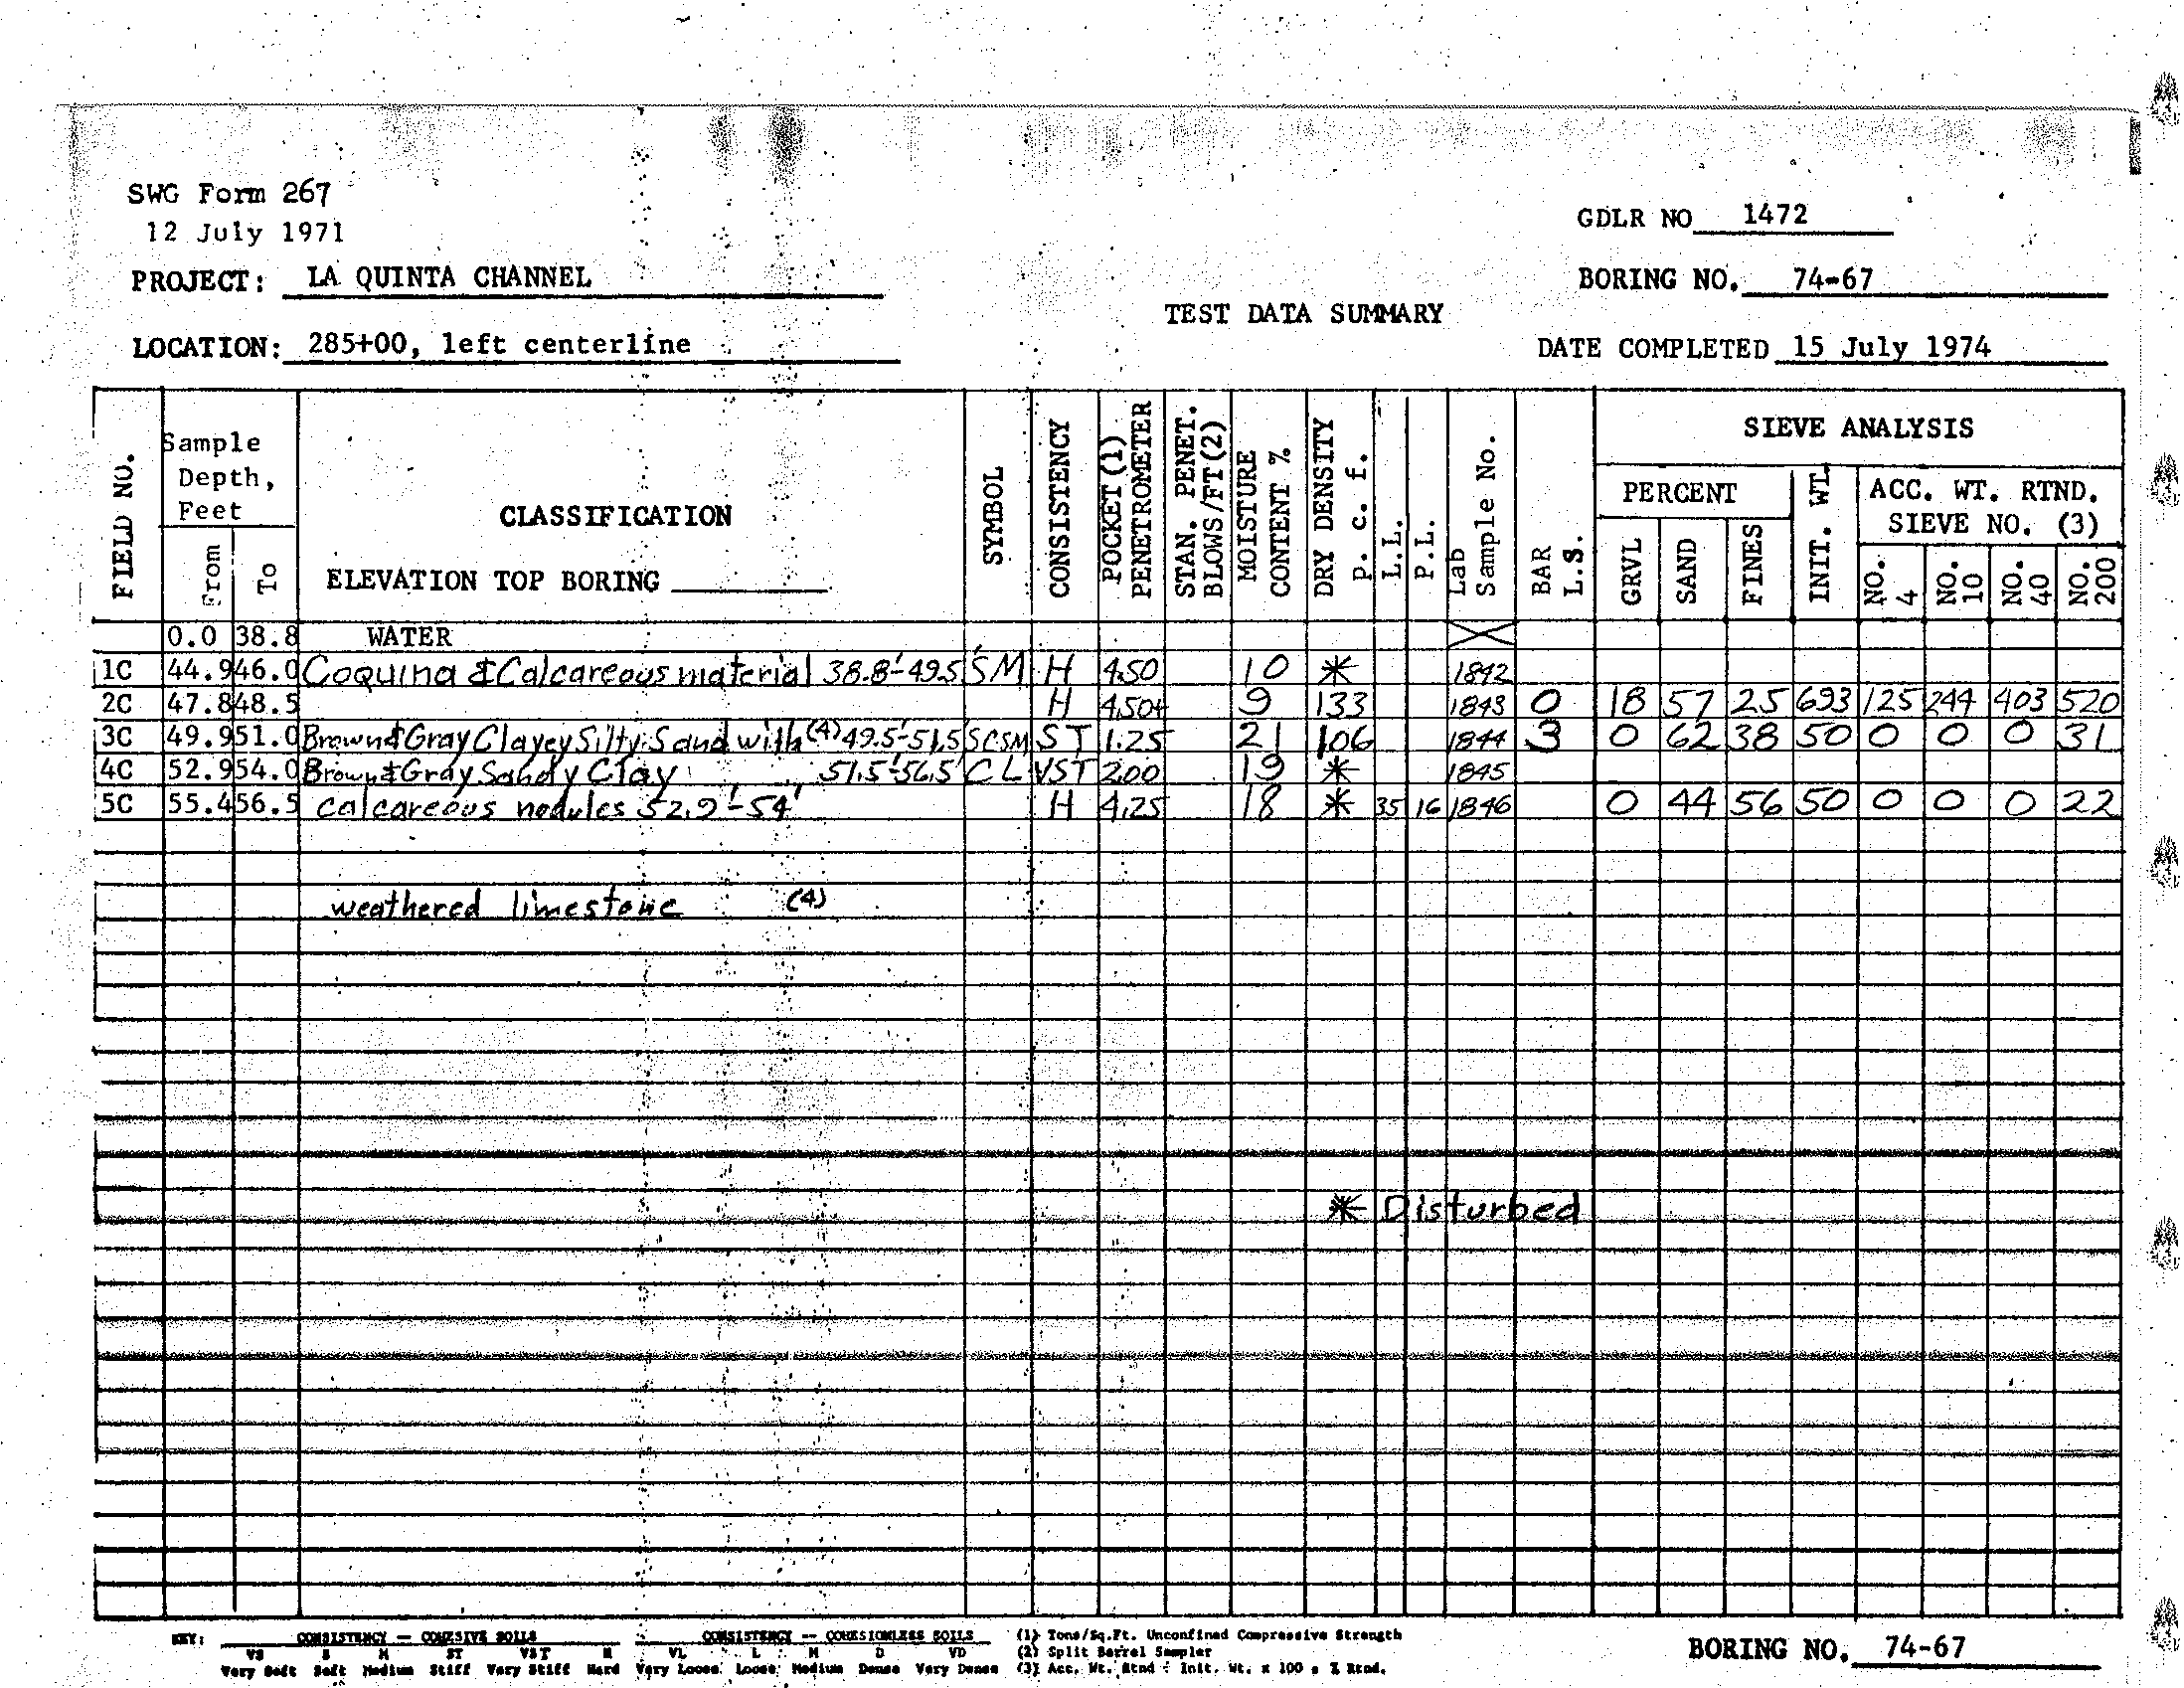 SWG Form 267
12 July 1971
GDLR NO 1472
PROJECT: LA QUINTA CHANNEL
BORING NO. 74-67
TEST DATA SUMMARY
LOCATION: 285+00, left centerline
DATE COMPLETED 15 July 1974
FIELD NO. Sample Depth, Feet From To CLASSIFICATION ELEVATION TOP BORING SYMBOL CONSISTENCY POCKET (1) PENETROMETER STAN. PENET. BLOWS/FT (2) MOISTURE CONTENT % DRY DENSITY p. c. f. L.L. P.L. Lab Sample No. BAR L.S. SIEVE ANALYSIS PERCENT GRVL SAND FINES INIT. WT. ACC. WT. RTND. SIEVE NO. (3) NO. 4 NO. 10 NO. 40 NO. 200
0.0 38.8 WATER
1C 44.9 46.0 Coquina & Calcareous material 38.8'-49.5 SM H 4.50 10 * 1842
2C 47.8 48.5 H 4.50+ 9 133 1843 0 18 57 25 693 125 244 403 520
3C 49.9 51.0 Brown & Gray Clayey Silty Sand with (4) 49.5'-51.5 SCSM ST 1.25 21 106 1844 3 0 62 38 50 0 0 0 31
4C 52.9 54.0 Brown & Gray Sandy Clay 51.5'-56.5' CL VST 2.00 19 * 1845
5C 55.4 56.5 calcareous nodules 52.9'-54' H 4.25 18 * 35 16 1846 0 44 56 50 0 0 0 22
weathered limestone (4)
* Disturbed
KEY: CONSISTENCY — COHESIVE SOILS CONSISTENCY -- COHESIONLESS SOILS (1) Tons/Sq.Ft. Unconfined Compressive Strength
VS S M ST VST H VL L M D VD (2) Split Barrel Sampler
Very Soft Soft Medium Stiff Very Stiff Hard Very Loose Loose Medium Dense Very Dense (3) Acc. Wt. Rtnd ÷ Init. Wt. x 100 = % Rtnd.
BORING NO. 74-67